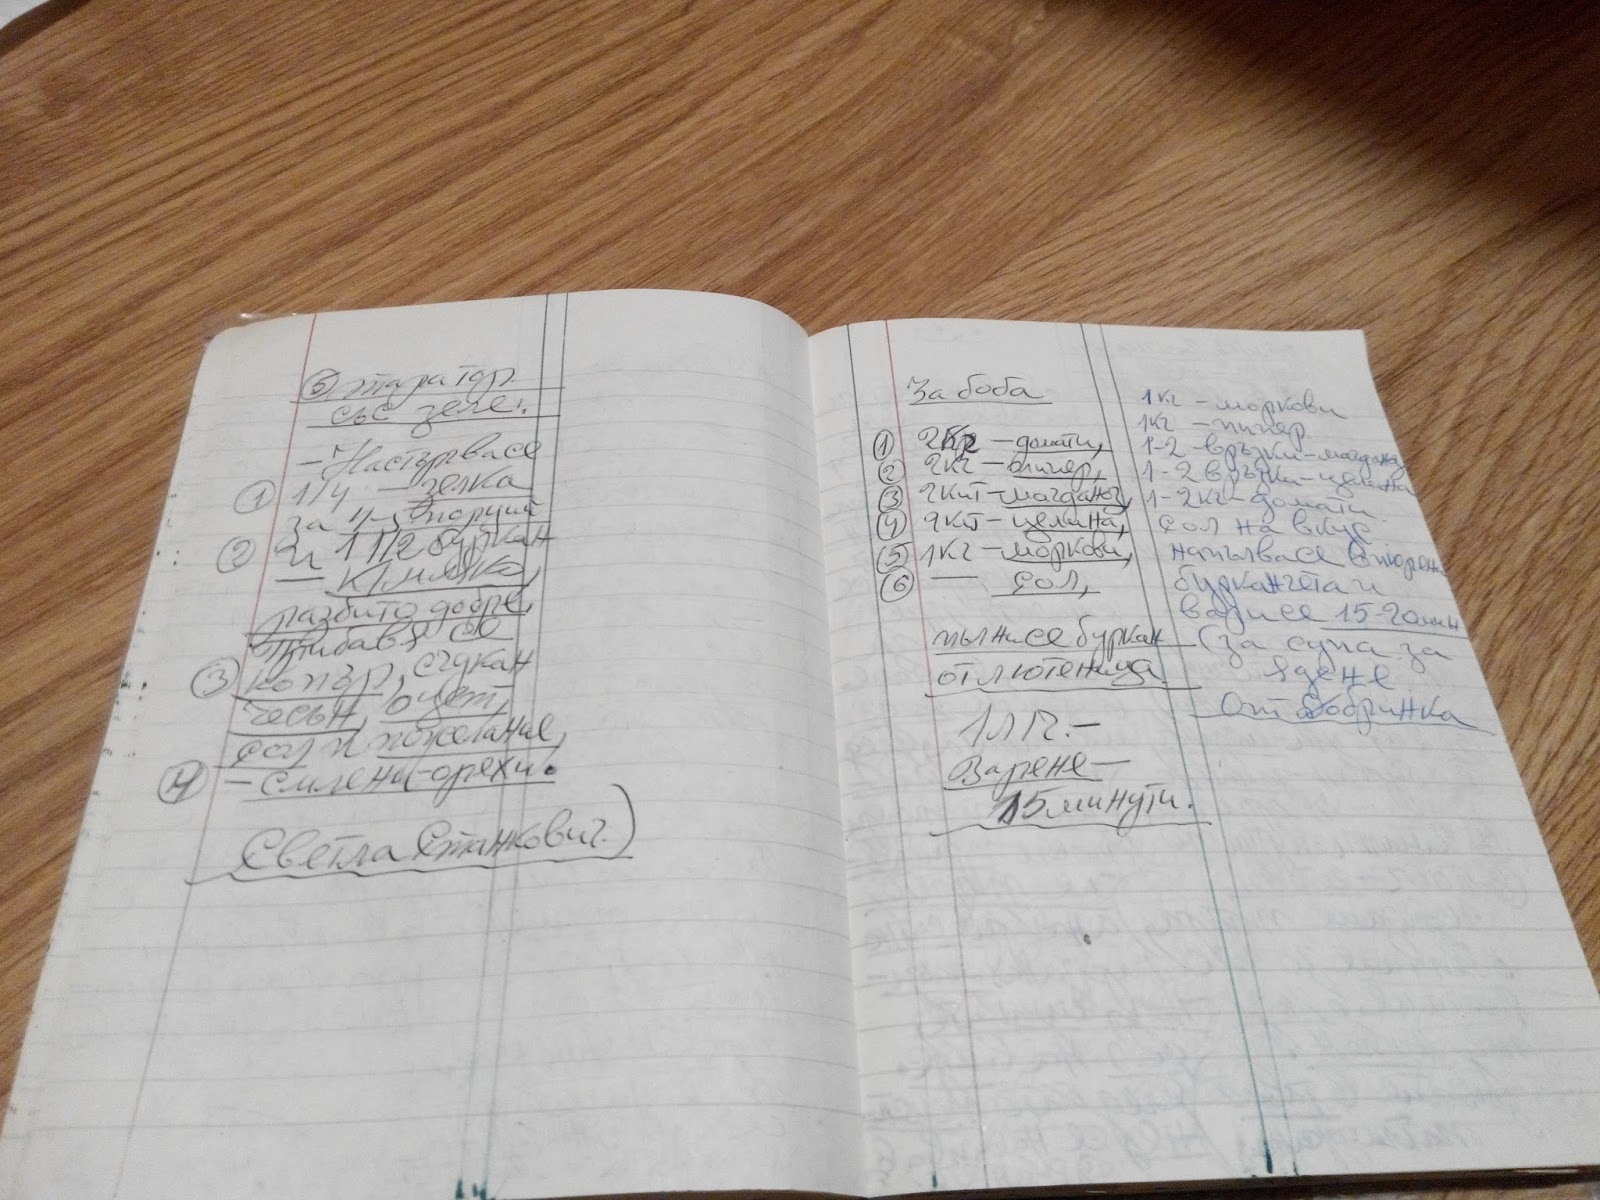 ⑤ таратор
със зеле:
– Настъргва се
① 1/4 – зелка
за 4-5 порции
② и 1 1/2 буркан
– к/мляко,
разбито добре,
прибавя се
③ копър, счукан
чесън, оцет,
сол и пожелание,
④ – смлени-орехи.
Светла Станкович.)
За боба
① 2кг – домати,
② 2кг – пипер,
③ 2кит – магданоз,
④ 2кит – целина,
⑤ 1кг – моркови,
⑥ — сол,
пълни се буркан
от лютеница
1лт. –
Варене –
15 минути.
1кг – моркови
1кг – пипер
1-2 – връзки – магданоз
1-2 връзки – целина
1-2кг – домати
сол на вкус
напълва се в
бурканчета и
вари се 15-20 мин
(за супа за
ядене
От Добринка